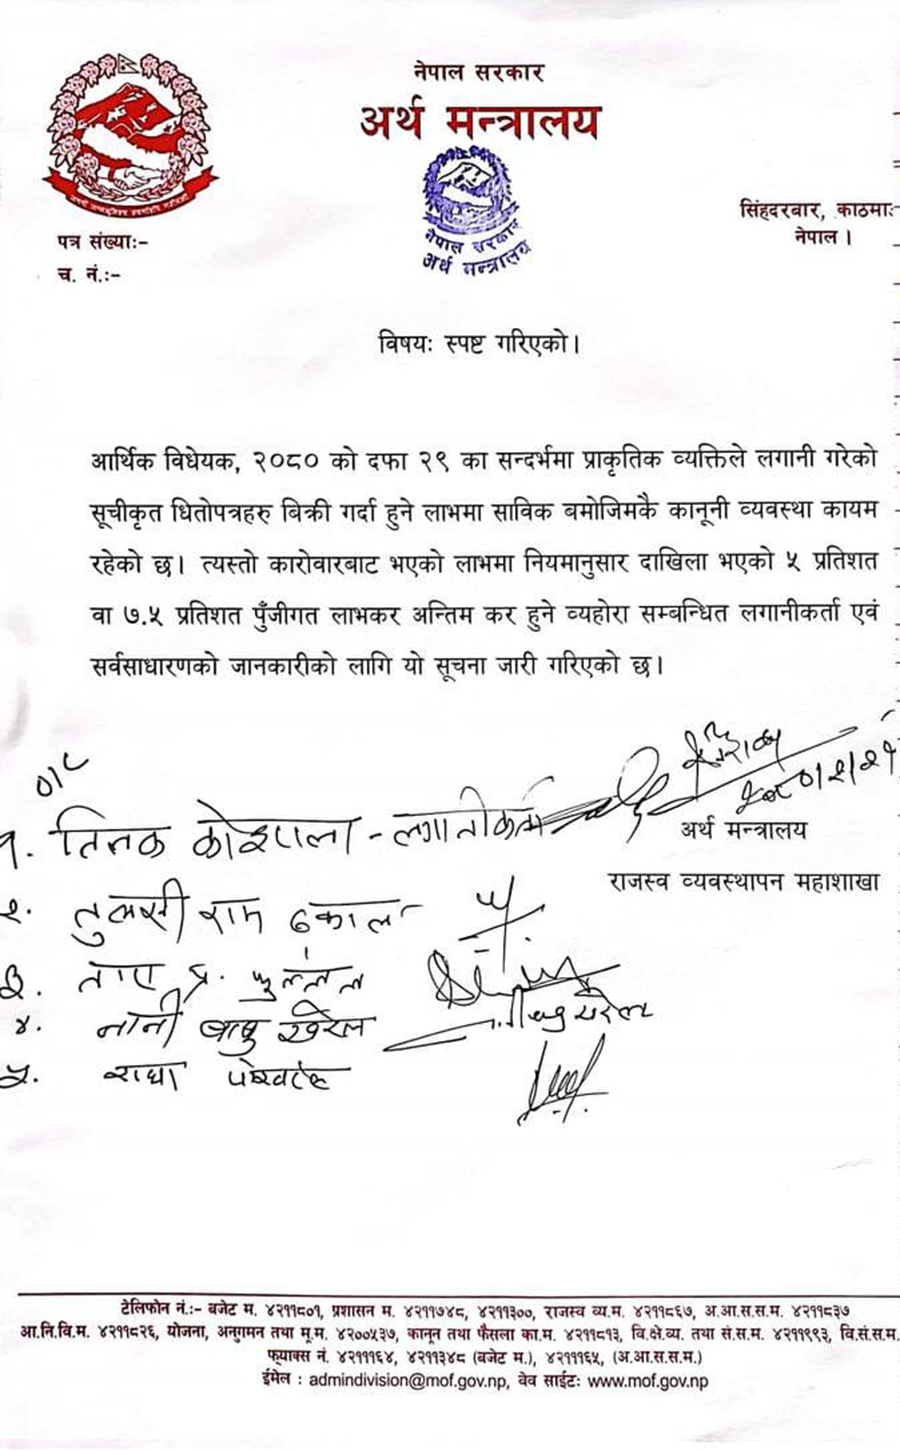 नेपाल सरकार
अर्थ मन्त्रालय
नेपाल सरकार
अर्थ मन्त्रालय
सिंहदरबार, काठमा
नेपाल ।
पत्र संख्याः-
च. नं.:-
विषयः स्पष्ट गरिएको।
आर्थिक विधेयक, २०८० को दफा २९ का सन्दर्भमा प्राकृतिक व्यक्तिले लगानी गरेको
सूचीकृत धितोपत्रहरु बिक्री गर्दा हुने लाभमा साविक बमोजिमकै कानूनी व्यवस्था कायम
रहेको छ। त्यस्तो कारोवारबाट भएको लाभमा नियमानुसार दाखिला भएको ५ प्रतिशत
वा ७.५ प्रतिशत पुँजीगत लाभकर अन्तिम कर हुने व्यहोरा सम्बन्धित लगानीकर्ता एवं
सर्वसाधारणको जानकारीको लागि यो सूचना जारी गरिएको छ।
अर्थ मन्त्रालय
राजस्व व्यवस्थापन महाशाखा
१. तिलक कोइराला - लगानीकर्ता
२. तुलसी राम ढकाल
३. तारा प्र. फुल्लेल
४. नानी बाबु खरेल
५. राधा पोखरेल
टेलिफोन नं.:- बजेट म. ४२११८०१, प्रशासन म. ४२११७४८, ४२११३००, राजस्व व्य.म. ४२११८६७, अ.आ.स.स.म. ४२११८३७
आ.नि.वि.म. ४२११८२६, योजना, अनुगमन तथा मू.म. ४२००५३७, कानून तथा फैसला का.म. ४२११८१३, वि.क्षे.व्य. तथा सं.स.म. ४२११९९३, वि.सं.स.म.
फ्याक्स नं. ४२१११६४, ४२११३४८ (बजेट म.), ४२१११६५, (अ.आ.स.स.म.)
ईमेल : admindivision@mof.gov.np, वेव साईटः www.mof.gov.np